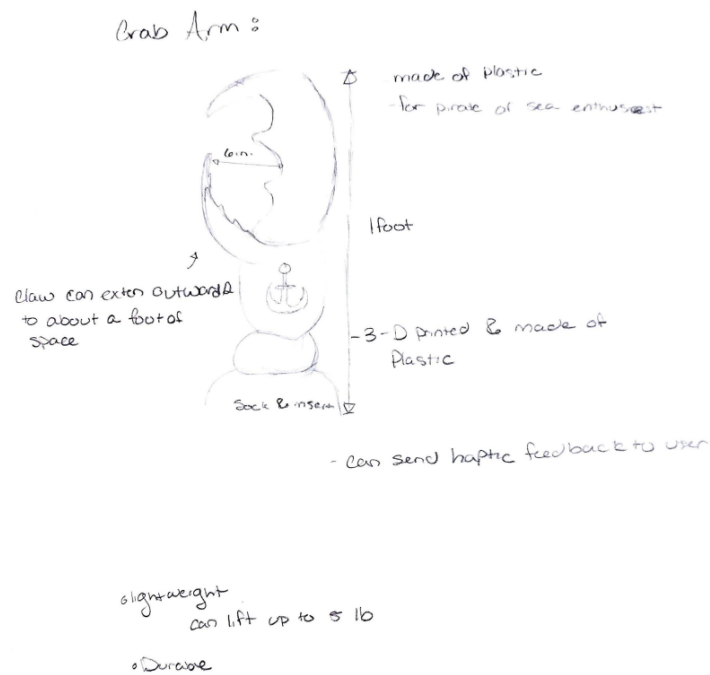 Crab Arm:
made of plastic
-for pirate or sea enthusiast
6in.
1 foot
Claw can exten outwards
to about a foot of
space
-3-D printed & made of
Plastic
Sock & insert
- can send haptic feedback to user
lightweight
can lift up to 5 lb
Durable